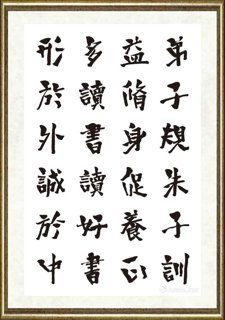 弟子規朱子訓
益脩身促養正
多讀書讀好書
形於外誠於中